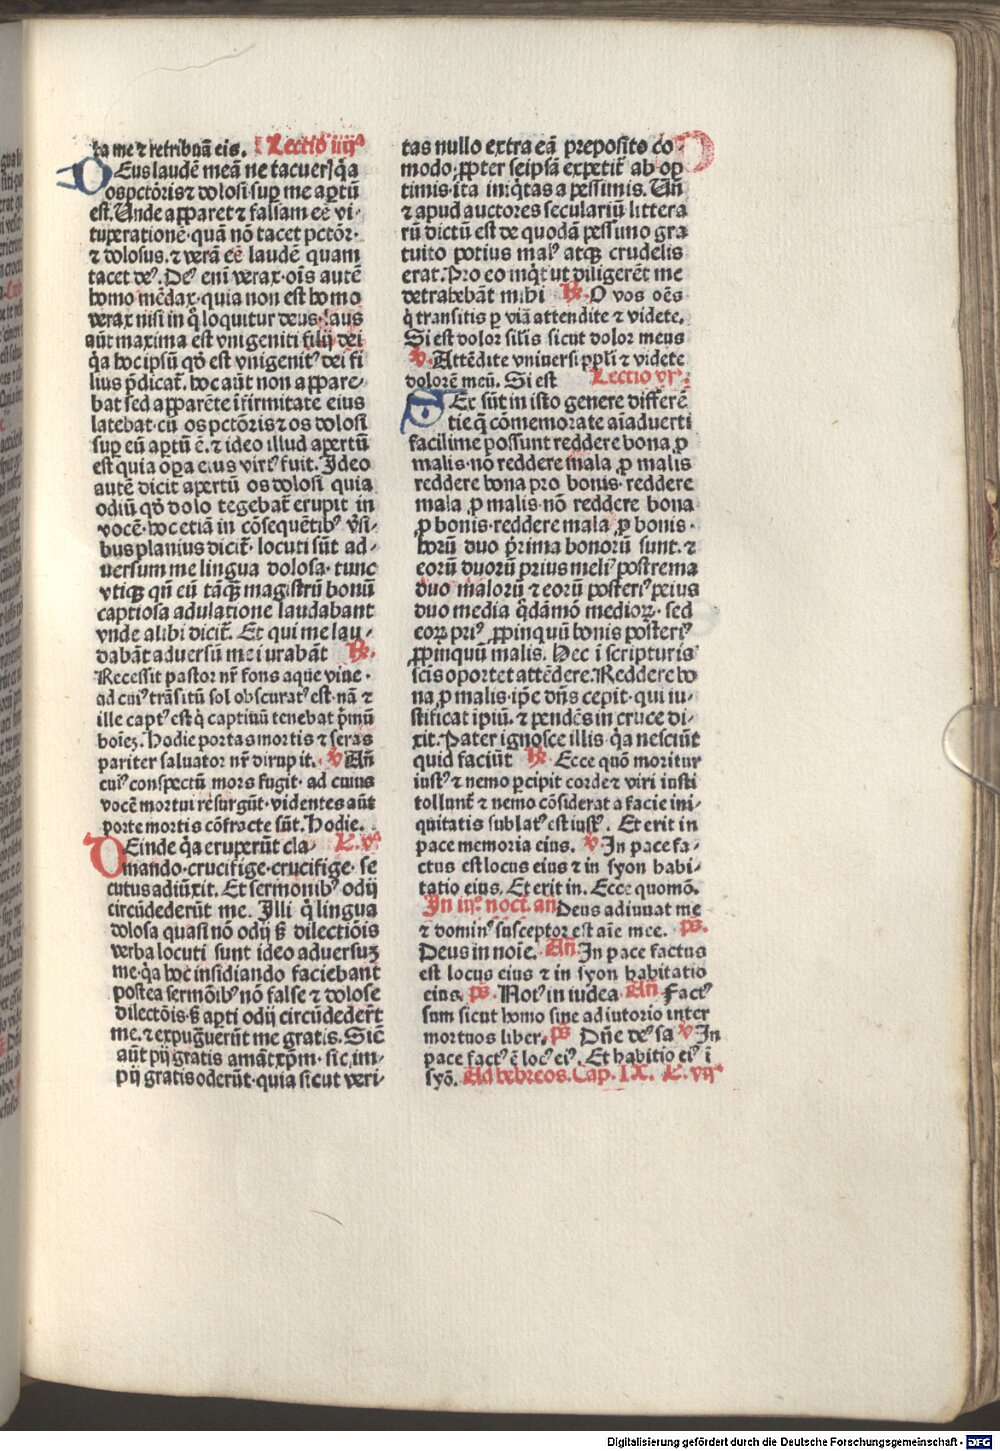 ta me ⁊ retribuā eis. Lectio iiijᵃ
DEus laudē meā ne tacuerꝭ q̇a
os pctōris ⁊ dolosi sup me aꝑtū
est. Unde apparet ⁊ falsam eē vi-
tuperationē· quā nō tacet pctōr·
⁊ dolosus. ⁊ verā eē laudē quam
tacet deꝰ. Deꝰ eni verax· oīs autē
homo mēdax· quia non est homo
verax nisi in q̇ loquitur deus· laus
aūt maxima est vnigeniti filij dei
q̇a hoc ipsū qḋ est vnigenitꝰ dei fi
lius p̄dicat̄. hoc aūt non appare-
bat sed apparēte īfirmitate eius
latebat· cū os pctōris ⁊ os dolosi
sup eū aꝑtū ē. ⁊ ideo illud apertū
est quia oꝑa eius virtꝰ fuit. Ideo
autē dicit apertū os dolosi quia
odiū qḋ dolo tegebat̄ erupit in
vocē· hoc etiā in cōsequētibꝰ v̄si-
bus planius dicit̄· locuti sūt ad-
versum me lingua dolosa· tunc
vtiqꝫ qn̄ eū tāqꝫ magistrū bonū
captiosa adulatione laudabant
vnde alibi dicit̄. Et qui me lau-
dabāt adversū me iurabāt ℟.
Recessit pastor nr̄ fons aque vive·
ad cuiꝰ trāsitū sol obscuratꝰ est· nā ⁊
ille captꝰ est q̇ captivū tenebat p̄mū
hoīeꝫ. Hodie portas mortis ⁊ seras
pariter salvator nr̄ dirupit. ℣ Añ
cuiꝰ conspectū mors fugit· ad cuius
vocē mortui resurgūt· videntes aūt
porte mortis cōfracte sūt. Hodie.
DEinde q̇a eruperūt cla- L. vᵃ
mando· crucifige· crucifige· se
cutus adiūxit. Et sermonibꝰ odij
circūdederūt me. Illi q̇ lingua
dolosa quasi nō odij sꝫ dilectiōis
verba locuti sunt ideo adversuꝫ
me· q̇a hoc insidiando faciebant
postea sermōibꝰ nō false ⁊ dolose
dilectōis· sꝫ aꝑti odij circūdeder̄t
me. ⁊ expug̃uerūt me gratis. Sic̄
aūt pij gratis amāt xp̄m· sic im-
pij gratis oderūt· quia sicut veri-
tas nullo extra eā preposito cō-
modo· ꝓpter seipsā expetit̄ ab op
timis· ita iniq̇tas a pessimis. Un̄
⁊ apud auctores seculariū littera
rū dictū est de quodā pessimo gra
tuito potius malꝰ atqꝫ crudelis
erat. Pro eo inq̇t ut diligerēt me
detrahebāt mihi ℟. O vos oēs
q̇ transitis ꝑ viā attendite ⁊ videte.
Si est dolor silīs sicut dolor meus
℣. Attēdite vniversi ppl̄i ⁊ videte
dolorē meū. Si est Lectio vjᵃ.
SEx sūt in isto genere differē
tie q̄ cōmemorate aīadverti
facilime possunt reddere bona ꝓ
malis· nō reddere mala ꝓ malis
reddere bona pro bonis· reddere
mala ꝓ malis· nō reddere bona
ꝓ bonis· reddere mala ꝓ bonis·
horū duo p̄rima bonorū sunt. ⁊
eorū duorū prius meliꝰ postrema
duo malorū ⁊ eorū posteriꝰ peius
duo media q̇dāmō medioꝝ· sed
eoꝝ priꝰ ꝓpinquū bonis posteriꝰ
ꝓpinquū malis. Hec ī scripturis
scīs oportet attēdere. Reddere bo
na ꝓ malis· ip̄e dn̄s cepit· qui iu-
stificat ipiū. ⁊ pendēs in cruce di-
xit. Pater ignosce illis· q̇a nesciūt
quid faciūt ℟. Ecce quō moritur
iustꝰ ⁊ nemo ꝑcipit corde ⁊ viri iusti
tollunt̄ ⁊ nemo cōsiderat a facie ini-
quitatis sublatꝰ est iustꝰ. Et erit in
pace memoria eius. ℣. In pace fa-
ctus est locus eius ⁊ in syon habi-
tatio eius. Et erit in. Ecce quomō.
In iijᵒ noct. añ Deus adiuvat me
⁊ dominꝰ susceptor est aīe mee. ps̄.
Deus in noīe. Añ. In pace factus
est locus eius ⁊ in syon habitatio
eius. ps̄. Notꝰ in iudea Añ Factꝰ
sum sicut homo sine adiutorio inter
mortuos liber. ps̄ Dn̄e deꝰ sa ℣ In
pace factꝰ ē locꝰ eiꝰ. Et habitio eiꝰ ī
syō. Ad hebreos. Cap. IX. L. vijᵃ
Digitalisierung gefördert durch die Deutsche Forschungsgemeinschaft - DFG